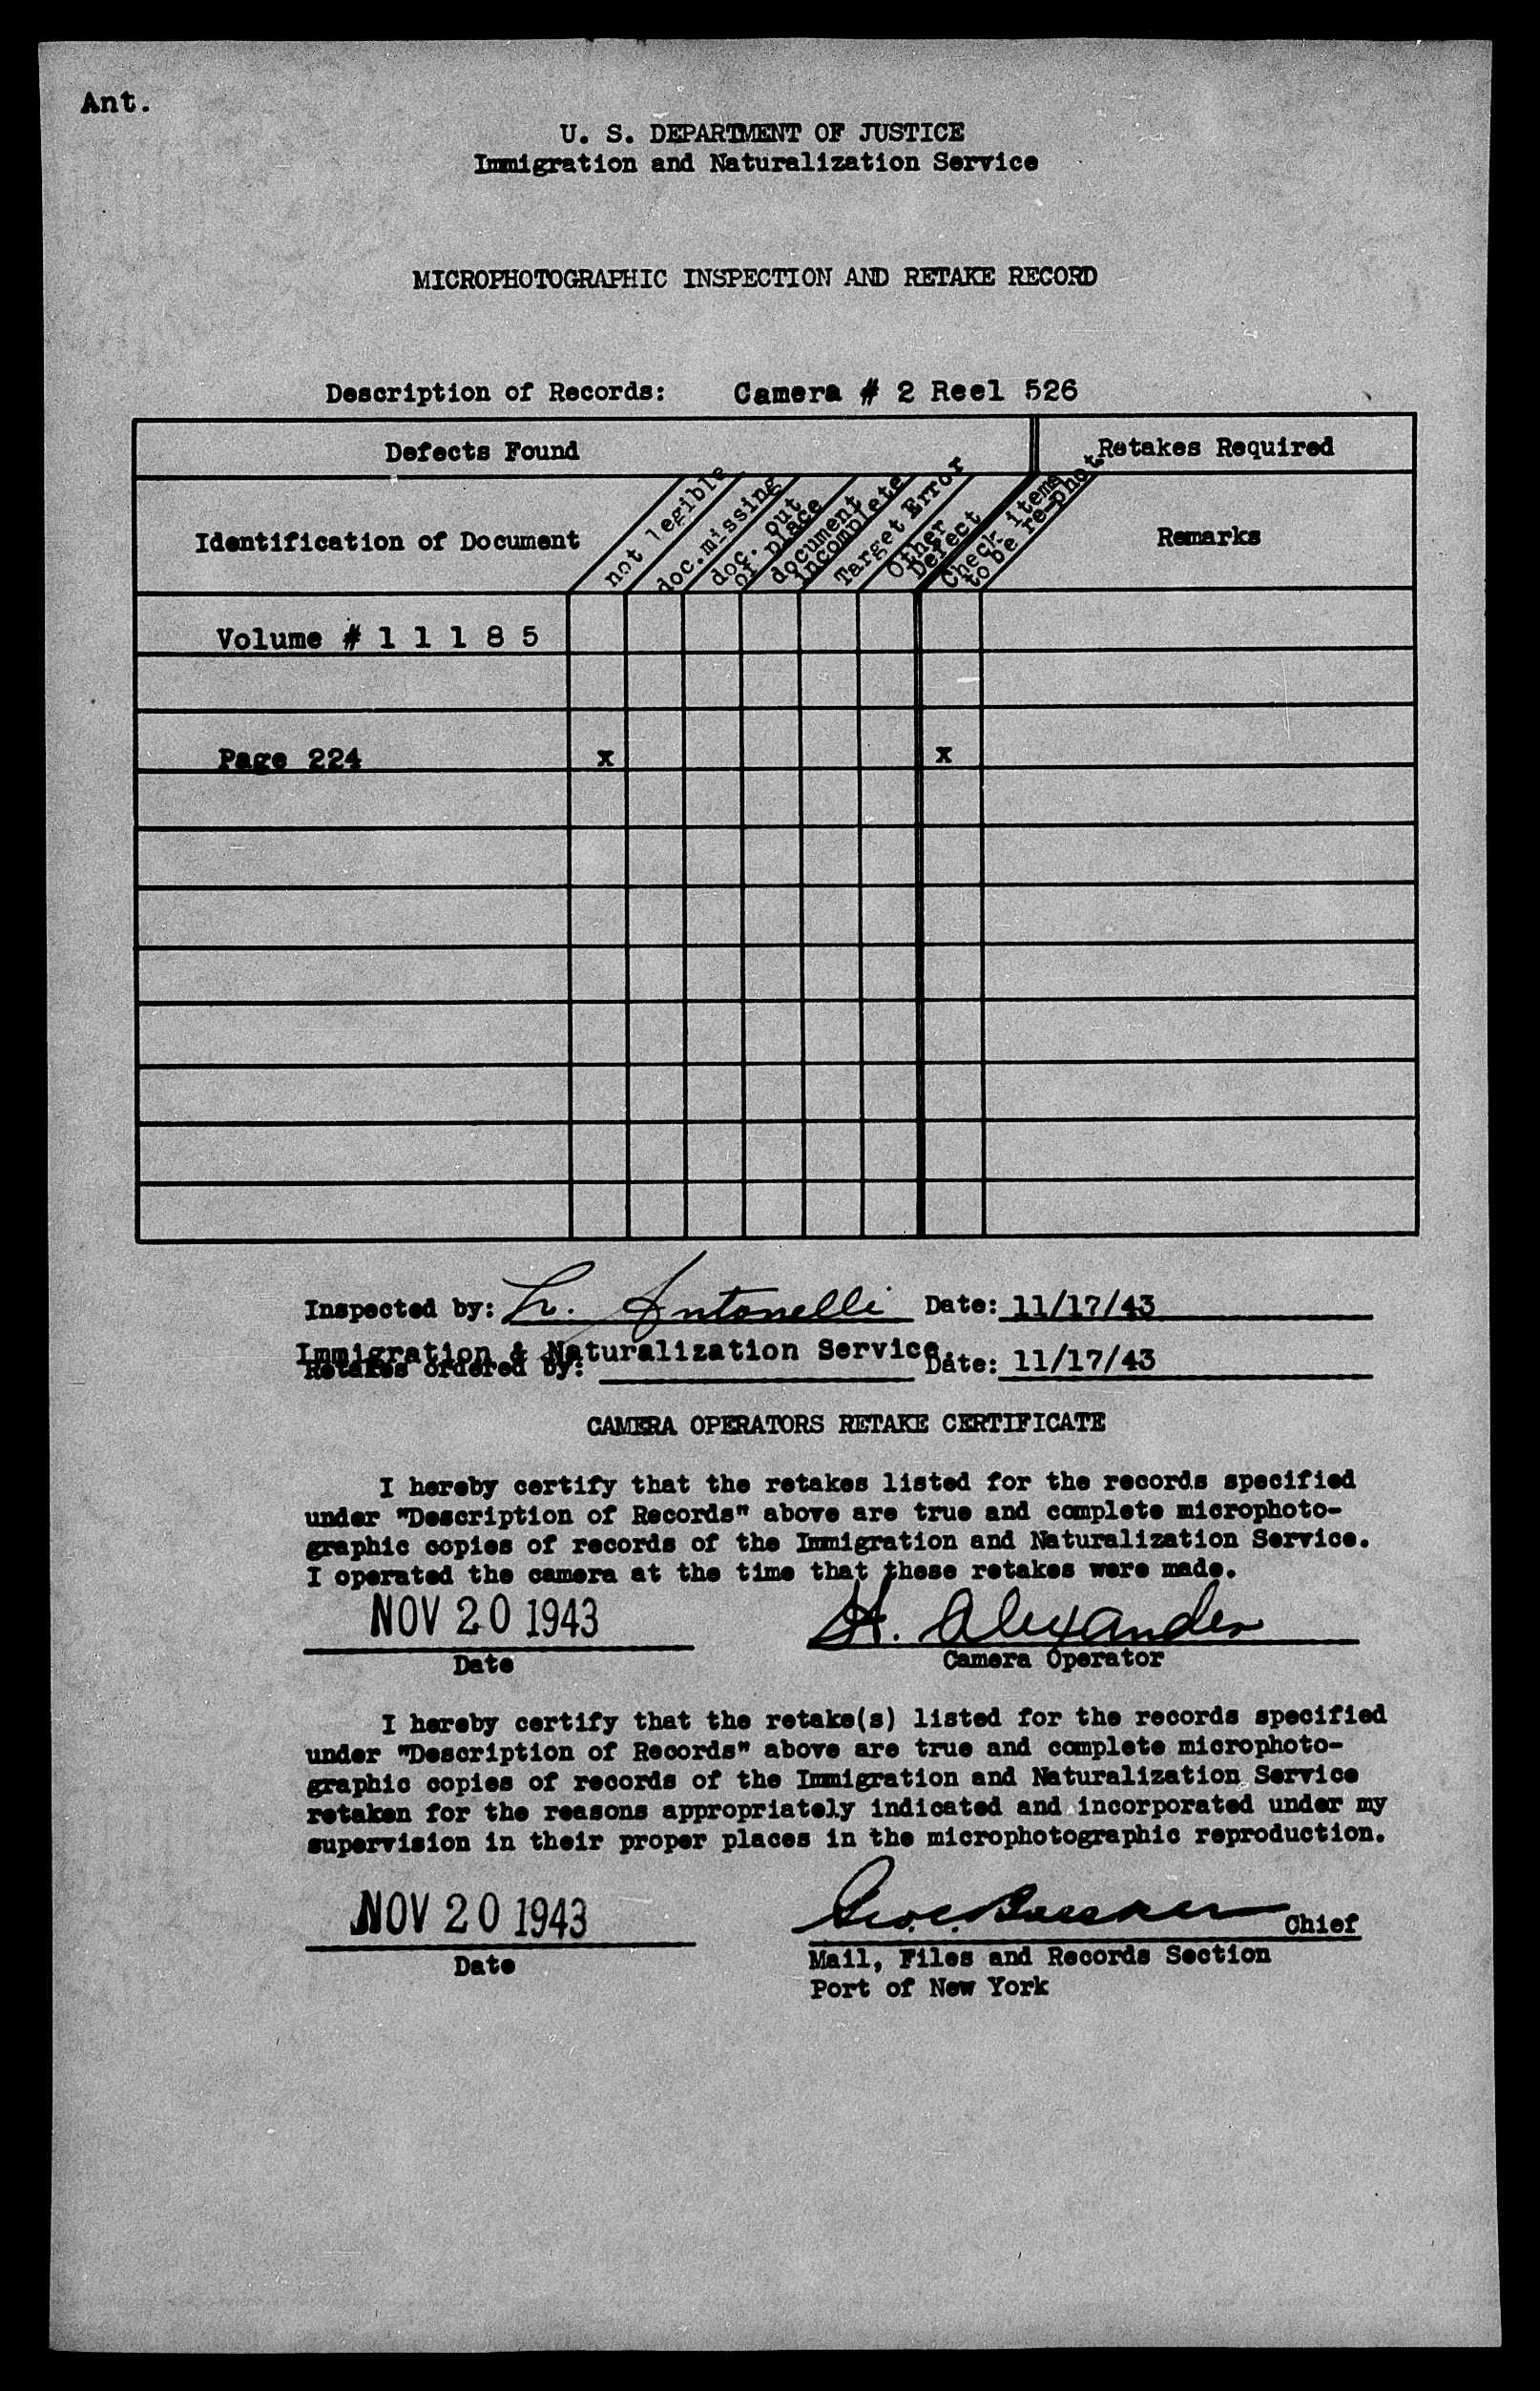 Ant.
U. S. DEPARTMENT OF JUSTICE
Immigration and Naturalization Service
MICROPHOTOGRAPHIC INSPECTION AND RETAKE RECORD
Description of Records: Camera # 2 Reel 526
Defects Found
Retakes Required
Identification of Document
not legible
doc.missing
doc. out
of place
document
incomplete
Target Error
Other
Defect
Check items
to be re-phot
Remarks
Volume # 1 1 1 8 5
Page 224 x x
Inspected by: L. Antonelli Date: 11/17/43
Immigration & Naturalization Service.
Retakes ordered by: Date: 11/17/43
CAMERA OPERATORS RETAKE CERTIFICATE
I hereby certify that the retakes listed for the records specified
under "Description of Records" above are true and complete microphoto-
graphic copies of records of the Immigration and Naturalization Service.
I operated the camera at the time that these retakes were made.
NOV 20 1943 H. Alexander
Date Camera Operator
I hereby certify that the retake(s) listed for the records specified
under "Description of Records" above are true and complete microphoto-
graphic copies of records of the Immigration and Naturalization Service
retaken for the reasons appropriately indicated and incorporated under my
supervision in their proper places in the microphotographic reproduction.
NOV 20 1943 Chief
Date Mail, Files and Records Section
Port of New York